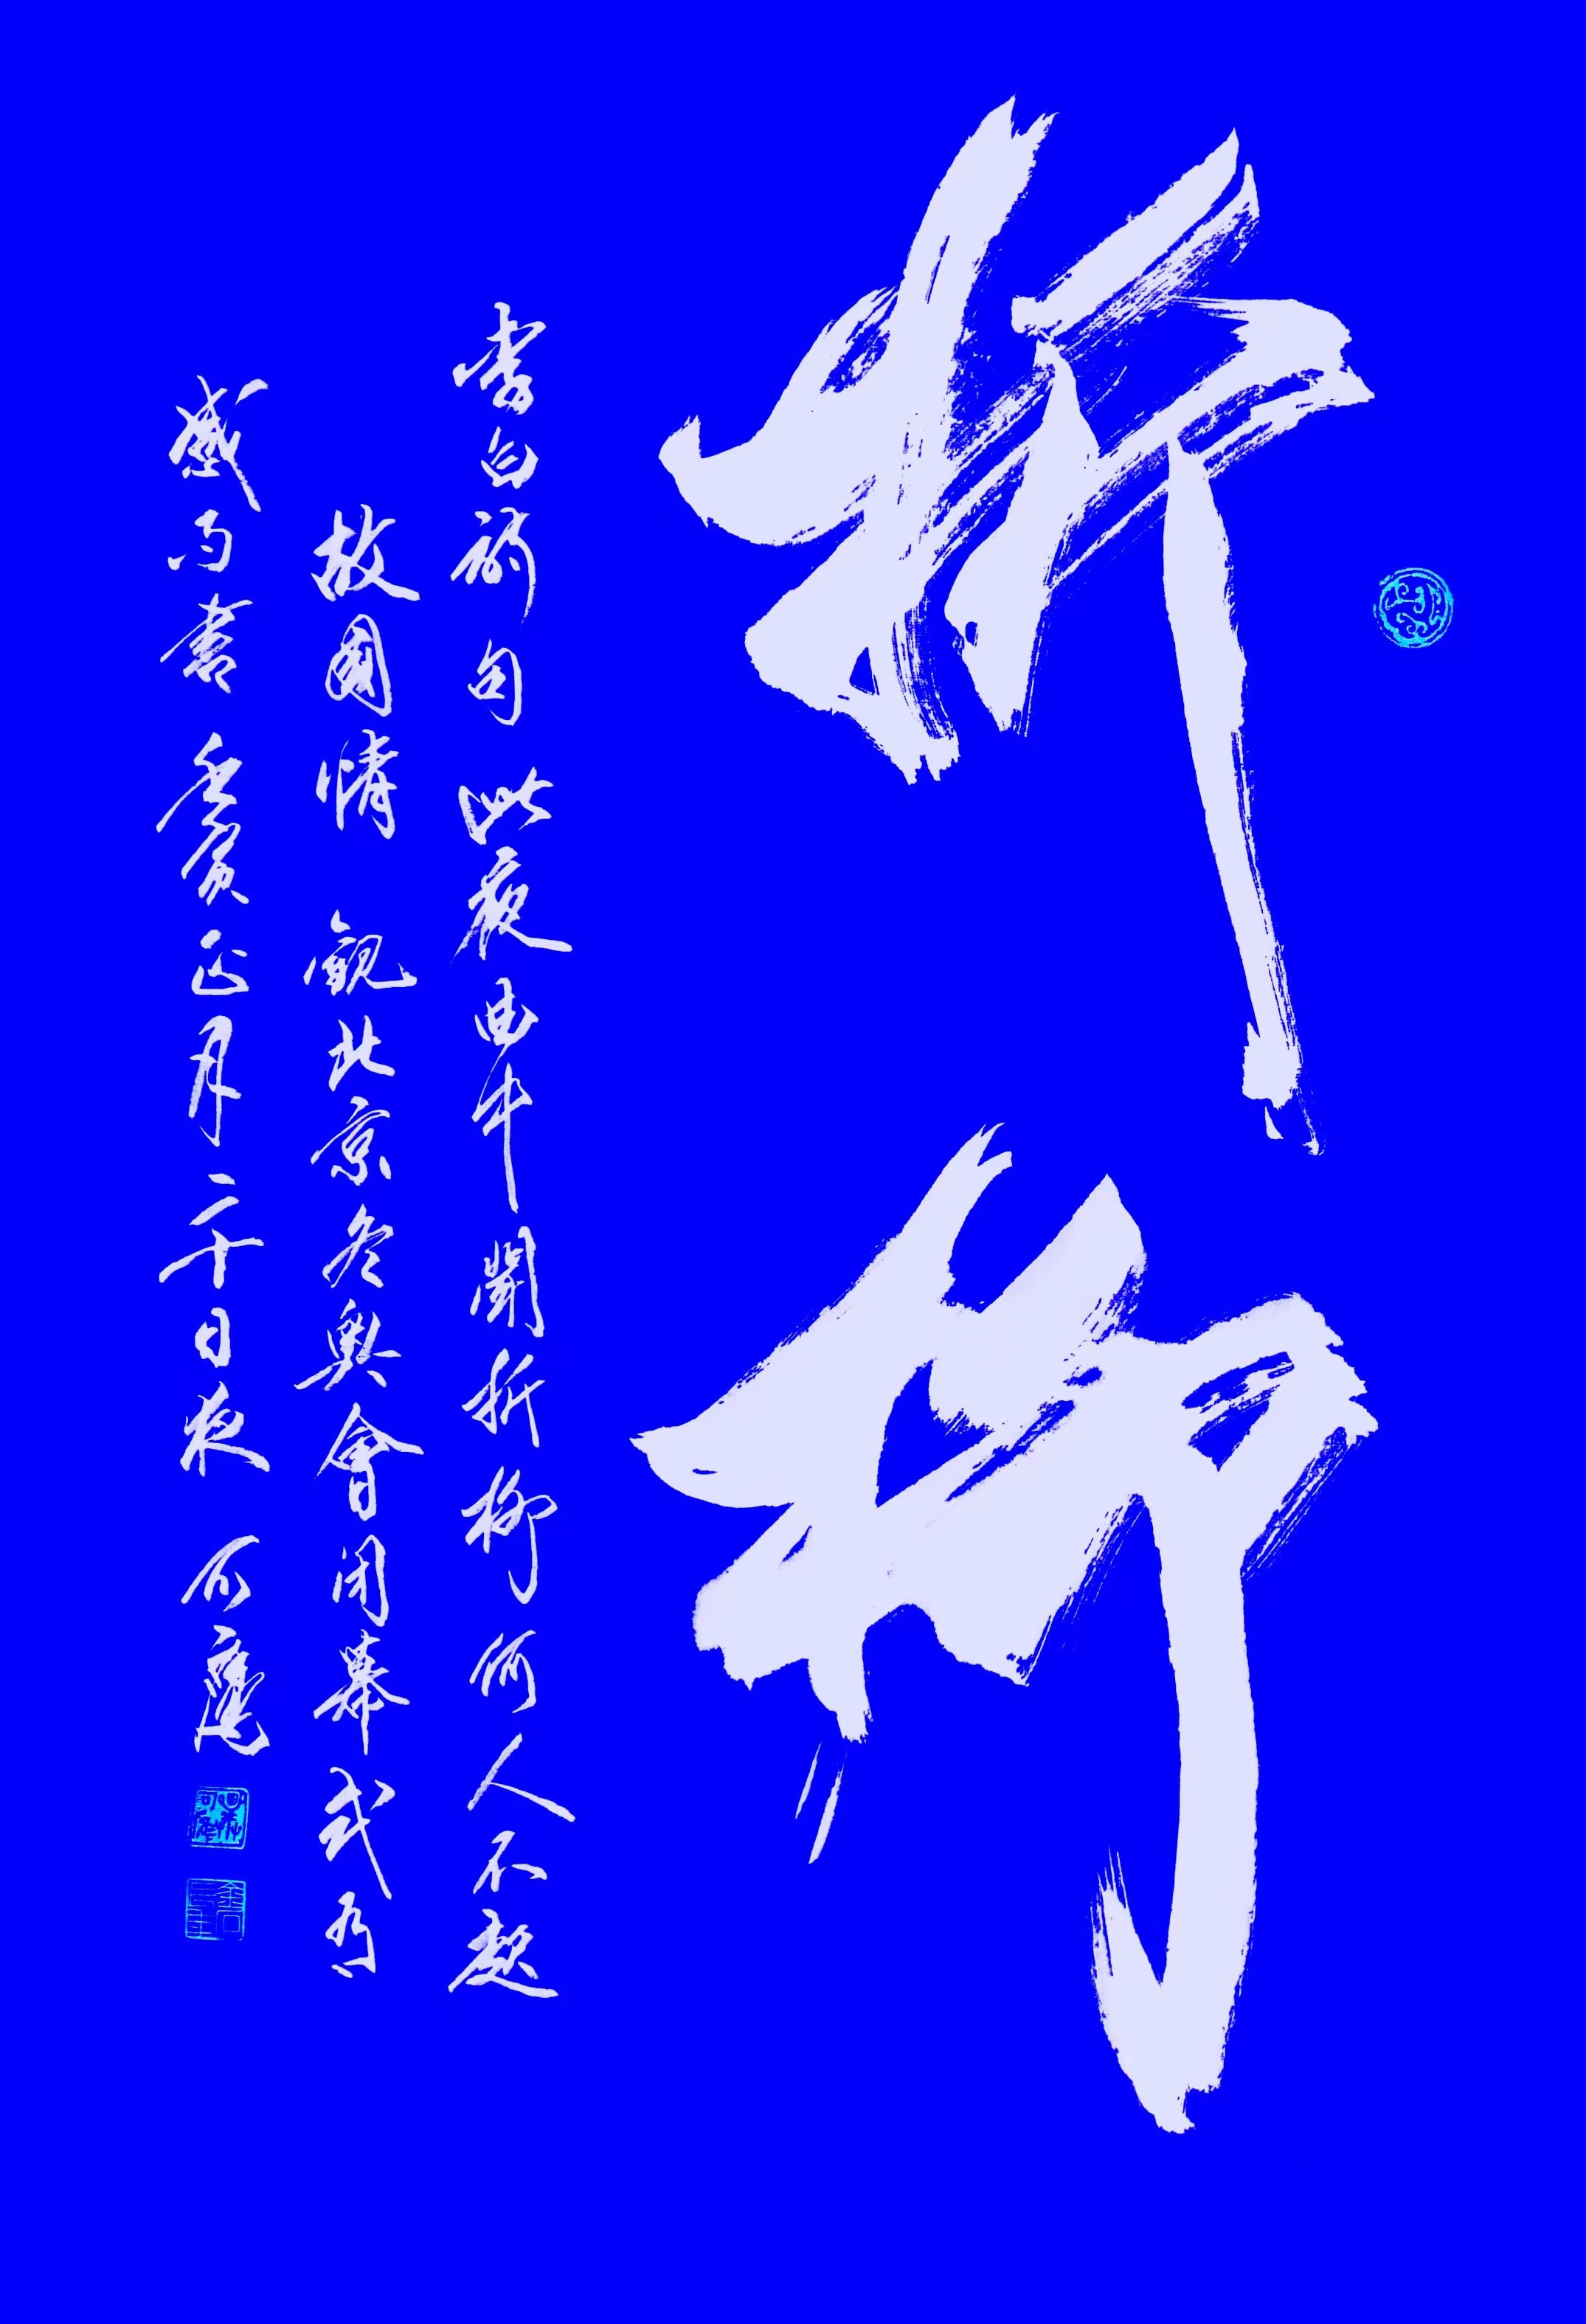 折柳
李白詩句 此夜曲中聞折柳何人不起
故園情 觀北京冬奥會闭幕式有
感而書 壬寅正月二十日夜 可應